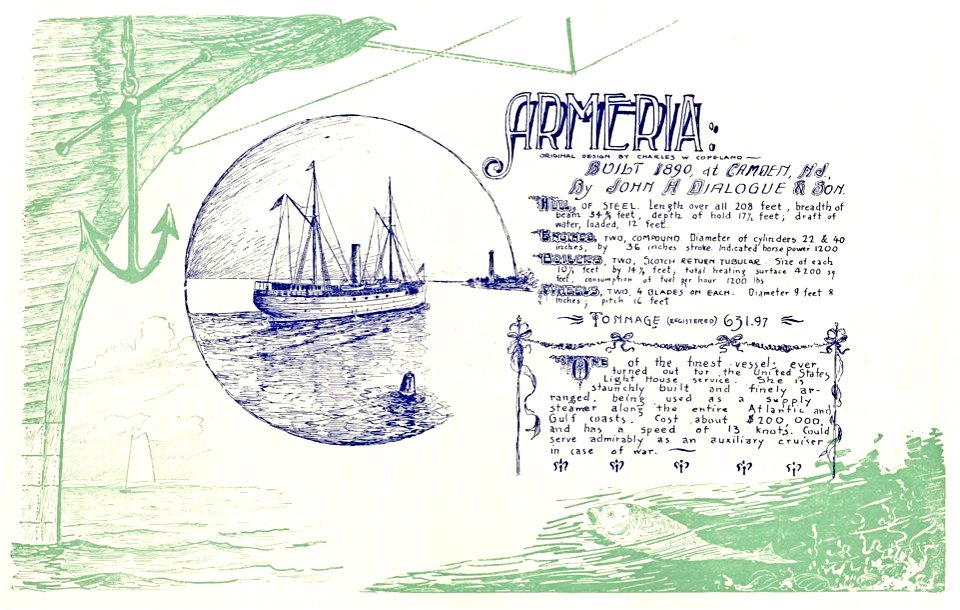 ARMERIA:
ORIGINAL DESIGN BY CHARLES W COPELAND
BUILT 1890, at CAMDEN, N.J.,
By JOHN H DIALOGUE & SON.
HULL, OF STEEL. Length over all 208 feet, breadth of
beam 34 feet, depth of hold 17½ feet; draft of
water, loaded, 12 feet.
ENGINES, TWO, COMPOUND Diameter of cylinders 22 & 40
inches, by 36 inches stroke. Indicated horse power 1200
BOILERS, TWO, SCOTCH RETURN TUBULAR. Size of each
feet by feet; total heating surface 4200 sq
feet, consumption of fuel per hour 1200 lbs
WHEELS, TWO, 4 BLADES ON EACH. Diameter 9 feet 8
inches; pitch 16 feet
TONNAGE (REGISTERED) 631.97
ONE of the finest vessels ever
turned out for the United States
Light House service. She is
staunchly built and finely ar-
ranged, being used as a supply
steamer along the entire Atlantic and
Gulf coasts. Cost about $200,000,
and has a speed of 13 knots. Could
serve admirably as an auxiliary cruiser
in case of war.